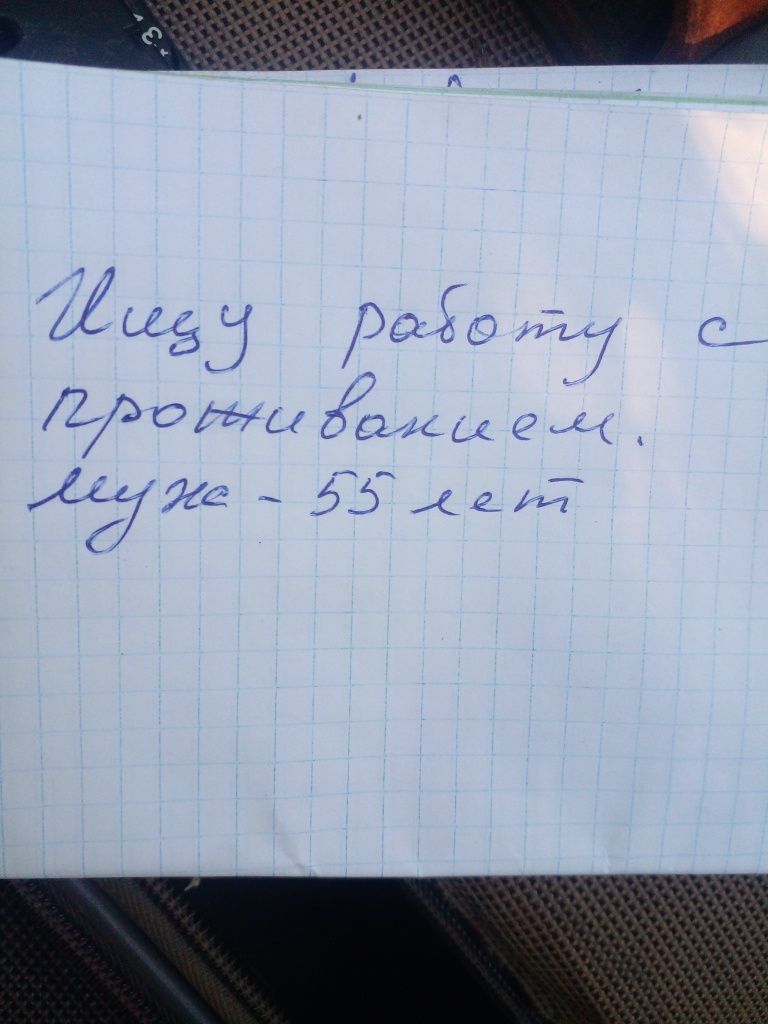 Ищу работу с
проживанием.
Муж - 55 лет